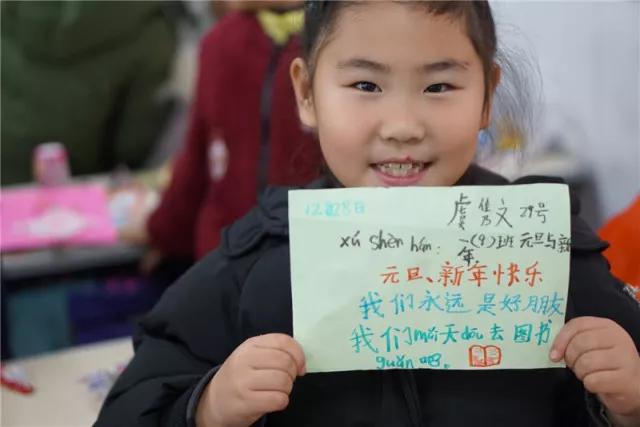 12月28日
虞佳乃文 29号
xú shèn hán: 一(9)班 元旦与新年,
元旦、新年快乐
我们永远是好朋友
我们měi天dōu去图书
guǎn吧。